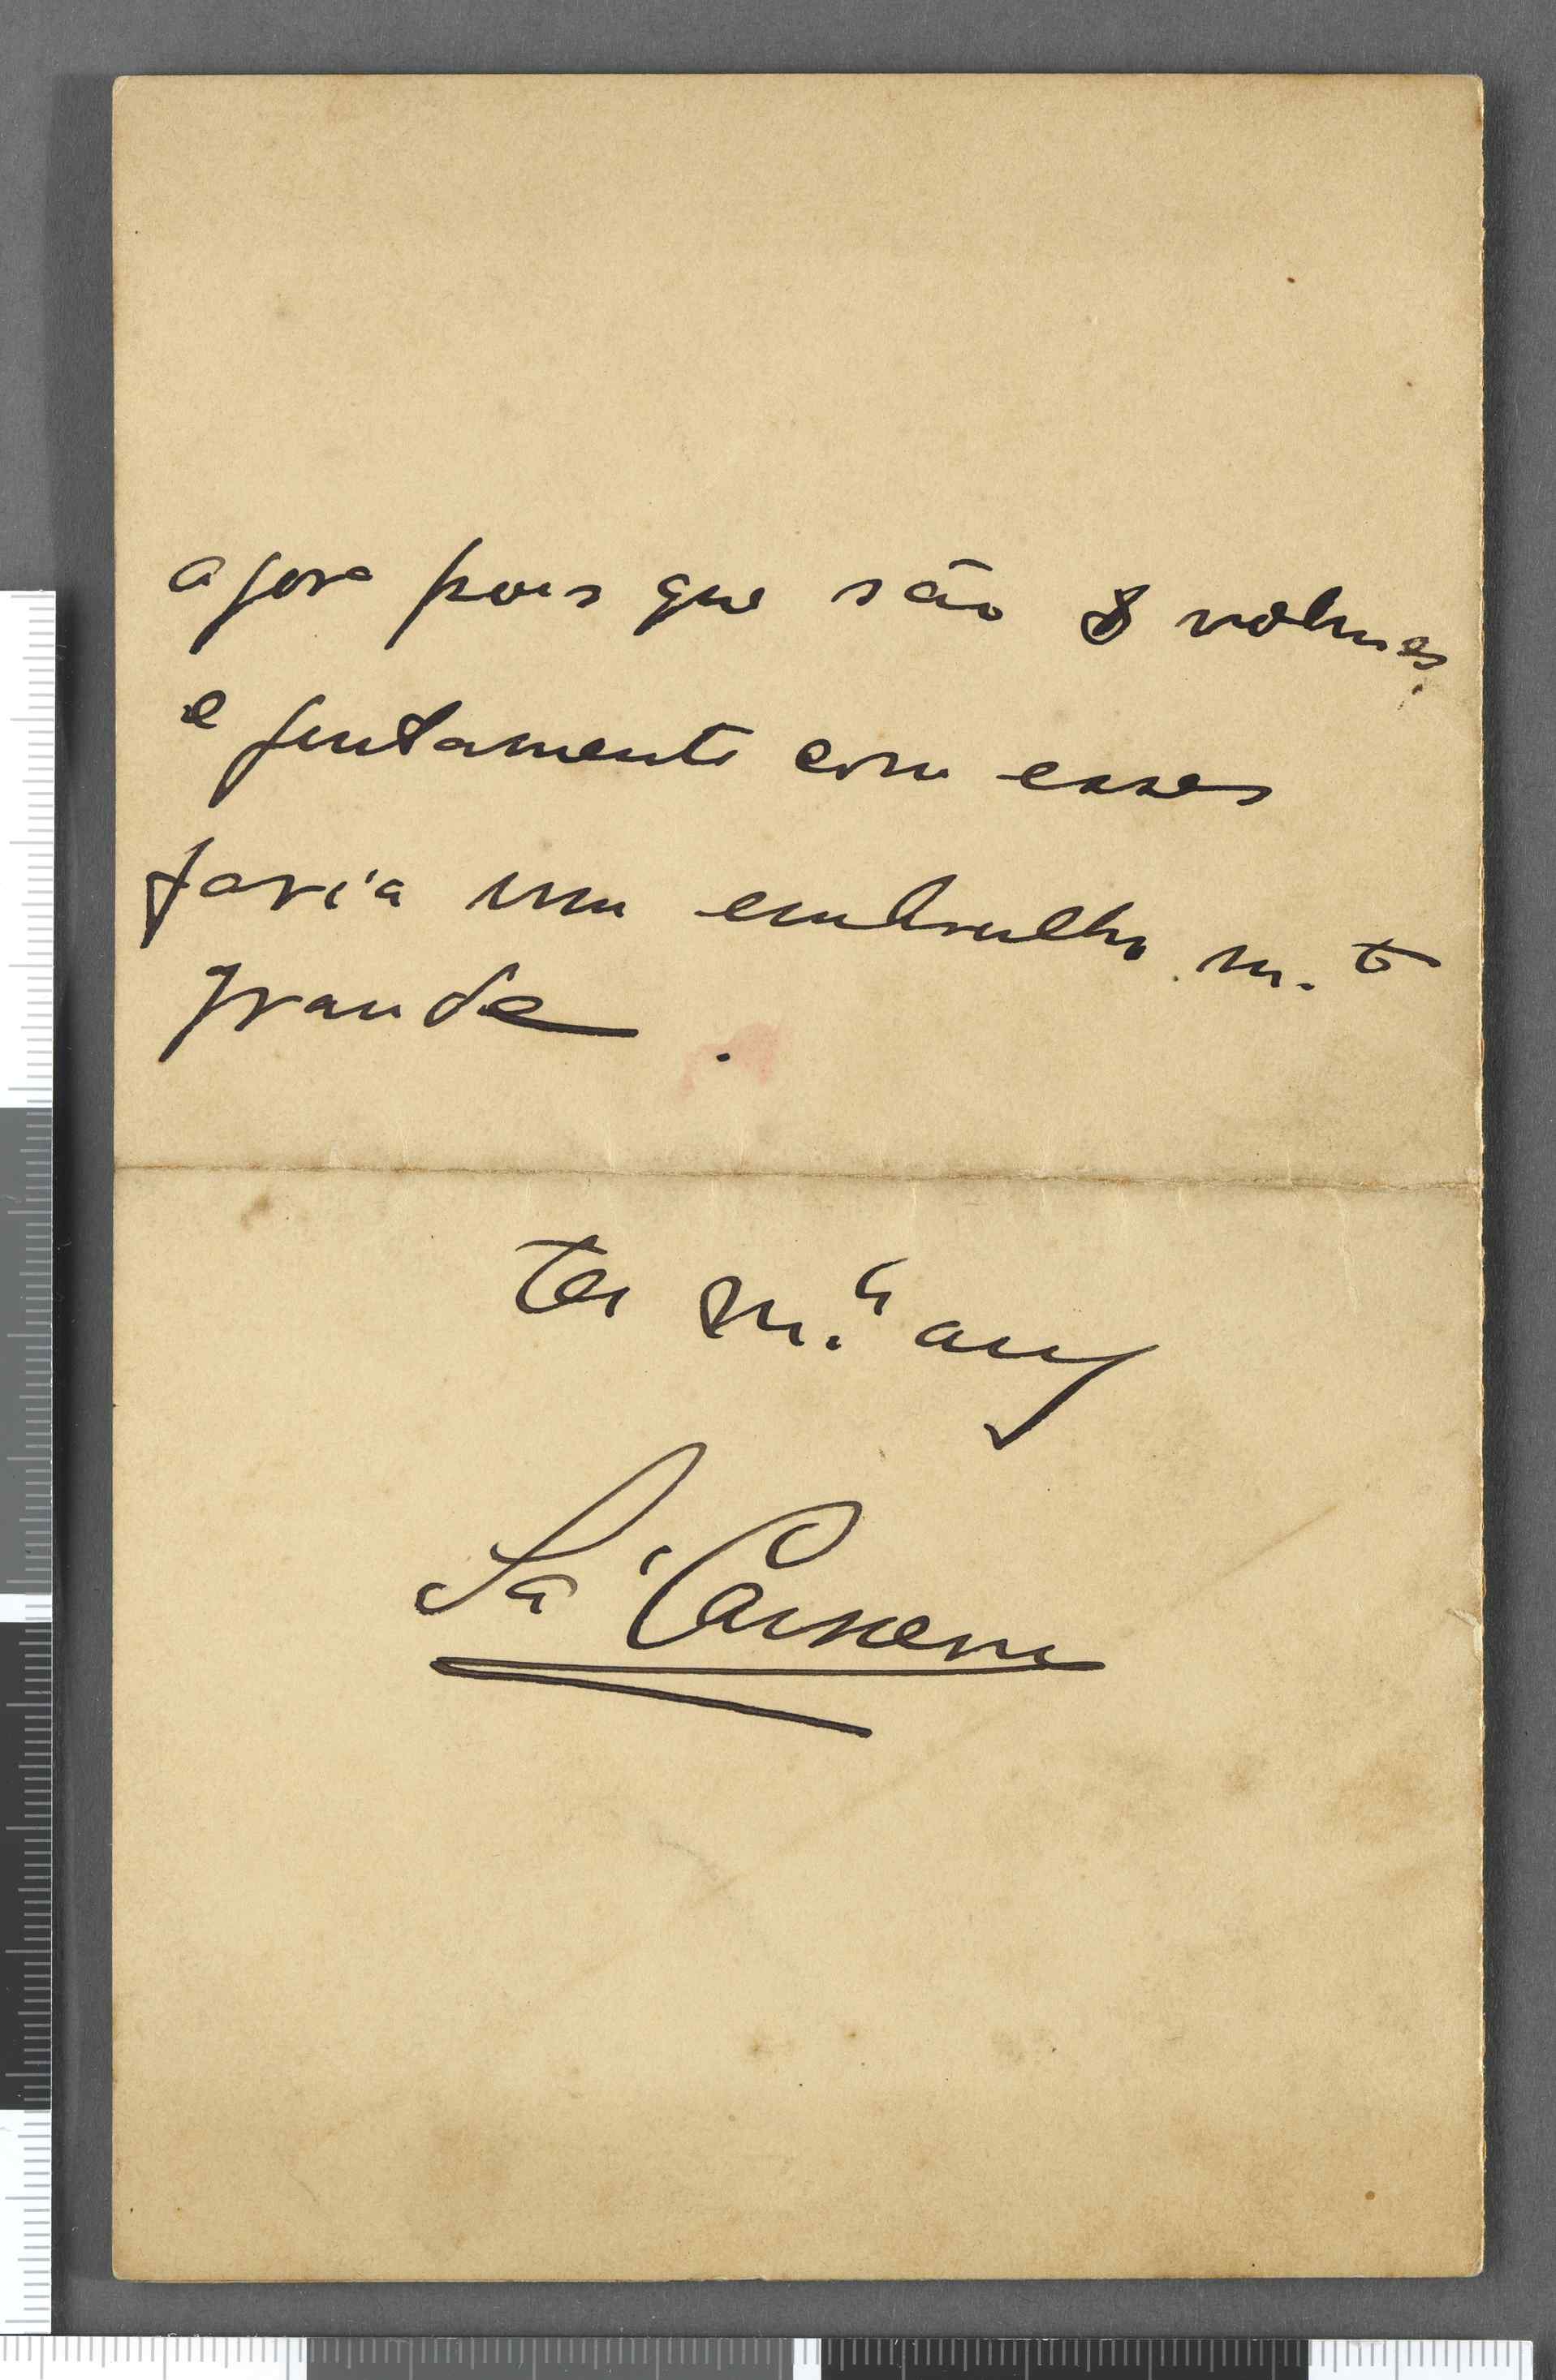 agora pois que são 8 volumes
e juntamente com esses
faria um embrulho m.to
grande.
Teu m.to amg
Sá Carneiro